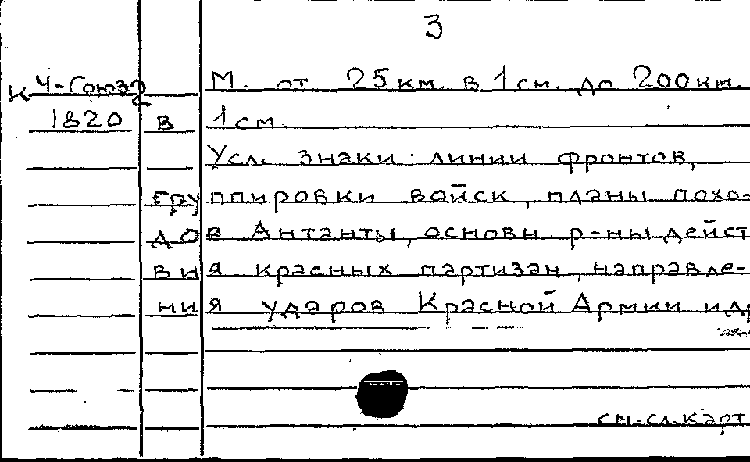 3
К Ч-Союз2 М. от 25км. в 1см. до 200км.
1820 в 1см.
Усл. знаки: линии фронтов,
группировки войск, планы похо-
дов Антанты, основн. р-ны дейст
вия красных партизан, направле-
ния ударов Красной Армии и др
см.сл.карт